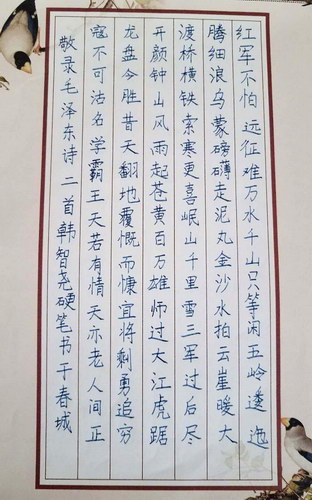 红军不怕远征难万水千山只等闲五岭逶迤
腾细浪乌蒙磅礴走泥丸金沙水拍云崖暖大
渡桥横铁索寒更喜岷山千里雪三军过后尽
开颜钟山风雨起苍黄百万雄师过大江虎踞
龙盘今胜昔天翻地覆慨而慷宜将剩勇追穷
寇不可沽名学霸王天若有情天亦老人间正
敬录毛泽东诗二首韩智尧硬笔书于春城